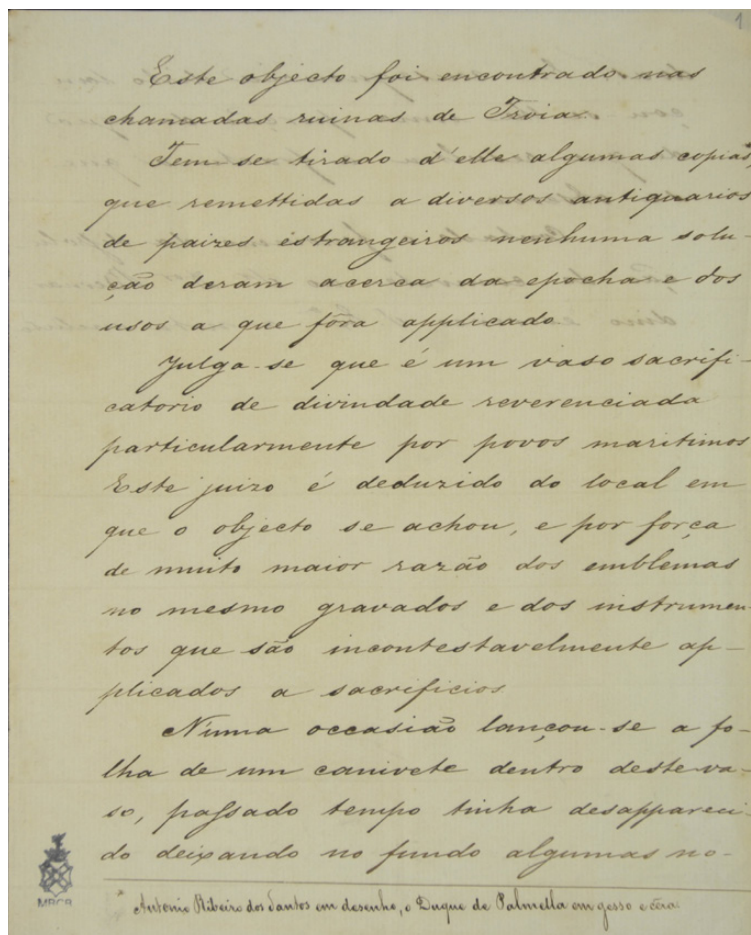 1
Este objecto foi encontrado nas
chamadas ruinas de Troia.
Tem-se tirado d'elle algumas copias*,
que remettidas a diversos antiquarios
de paizes estrangeiros nenhuma solu-
ção deram acerca da epocha e dos
usos a que fôra applicado
Julga-se que é um vaso sacrifi-
catorio de divindade reverenciada
particularmente por povos maritimos
Este juizo é deduzido do local em
que o objecto se achou, e por força
de muito maior razão dos emblemas
no mesmo gravados e dos instrumen-
tos que são incontestavelmente ap-
plicados a sacrificios
N'uma occasião lançou-se a fo-
lha de um canivete dentro deste va-
so, passado tempo tinha desappareci-
do deixando no fundo algumas no-
* Antonio Ribeiro dos Santos em desenho, o Duque de Palmella em gesso e cêra.
MBCB